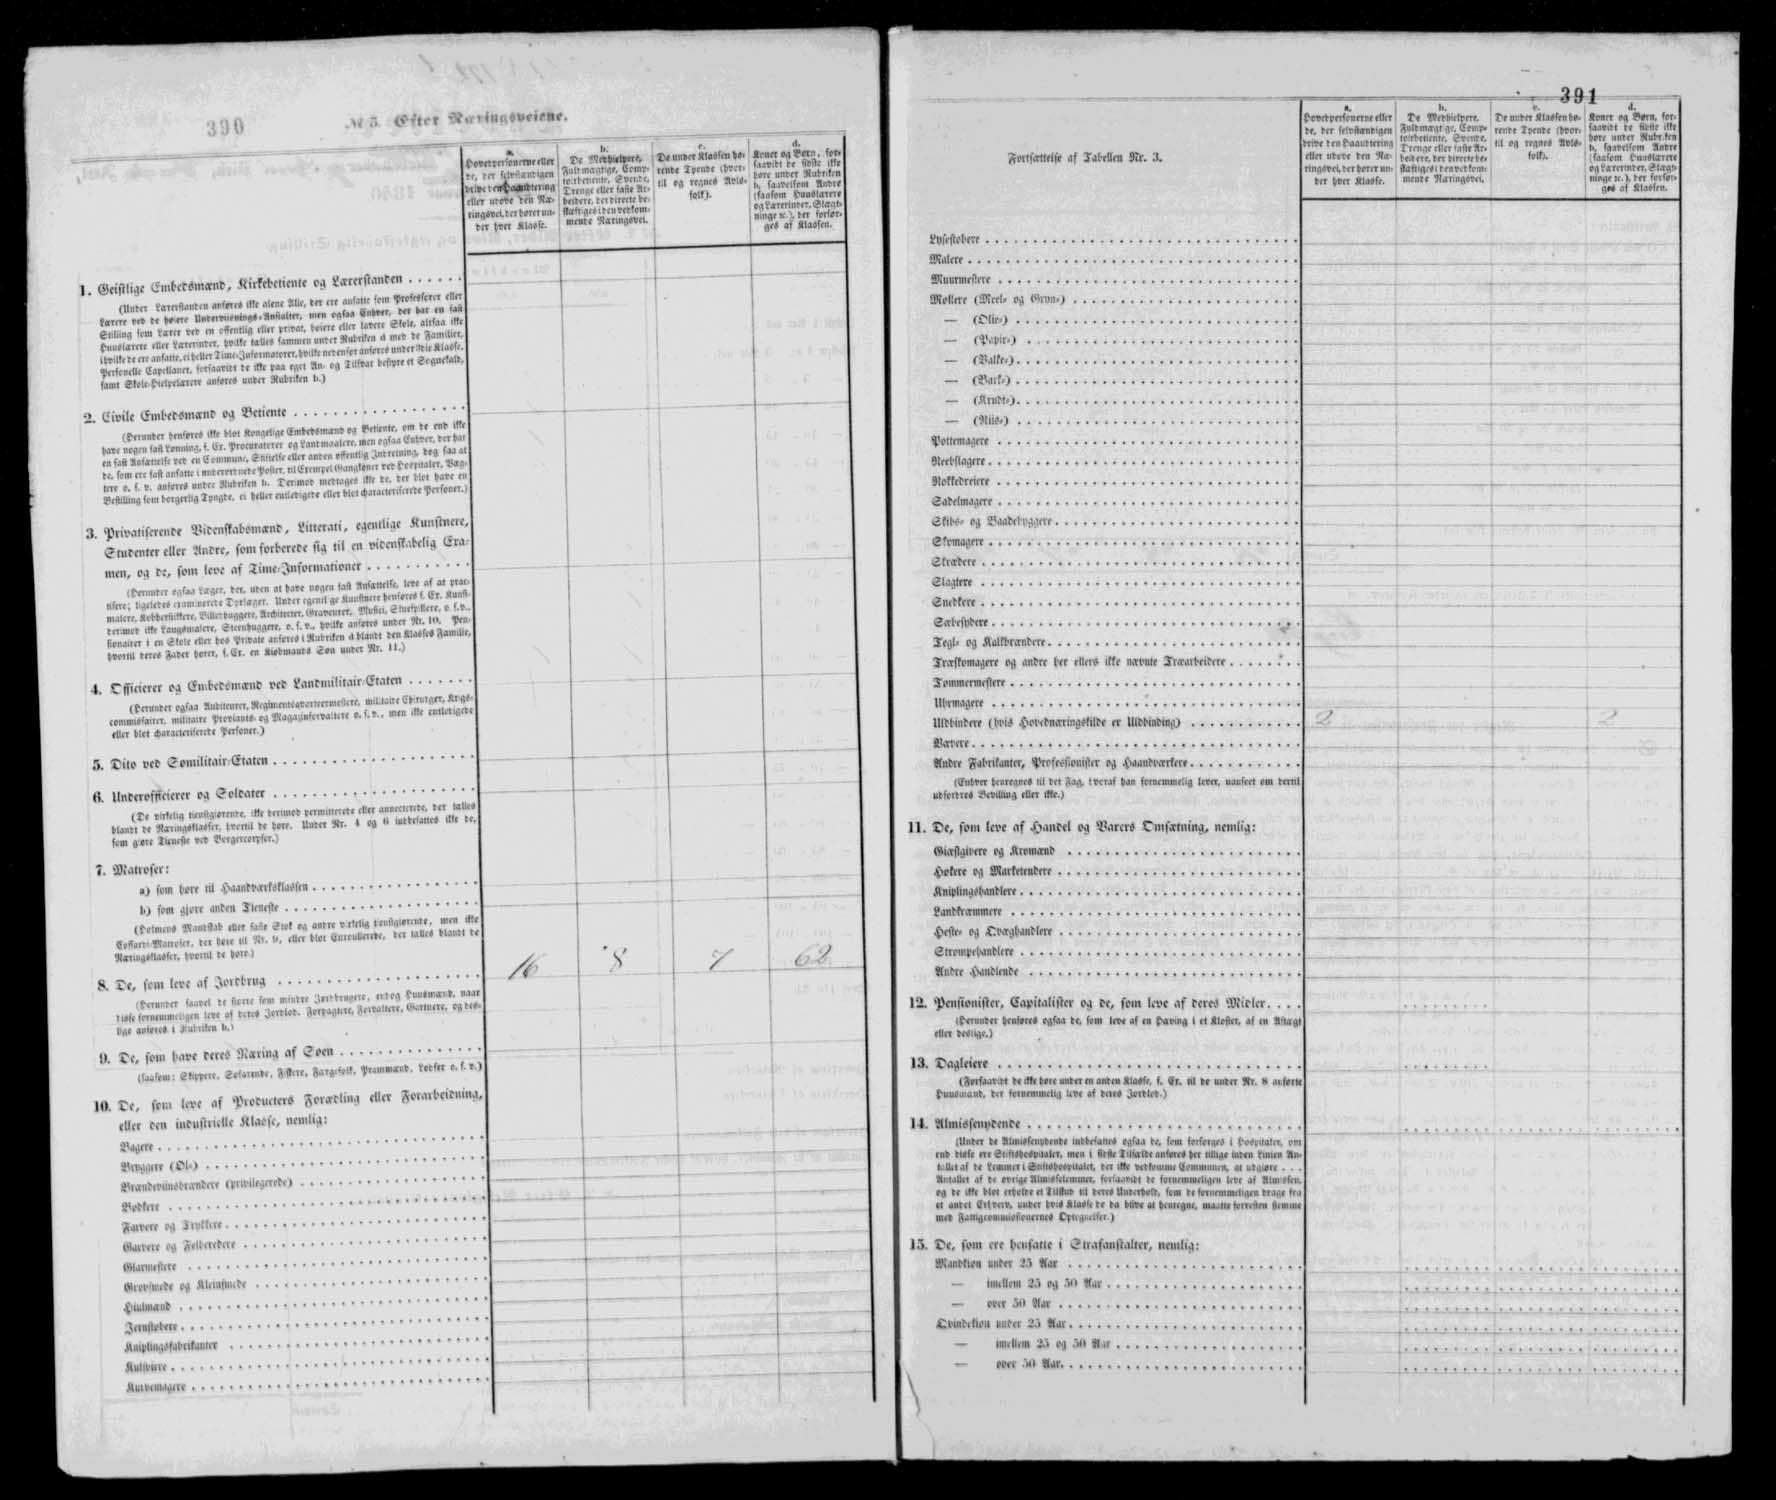 390
№ 3. Efter Næringsveiene.
a.
Hovedpersonerne eller
de, der selvstændigen
drive den Haandtering
eller udøve den Næ-
ringsvei, der hører un-
der hver Klasse.
b.
De Medhjelpere,
Fuldmægtige, Comp-
toirbetiente, Svende,
Drenge eller faste Ar-
beidere, der directe be-
skæftiges i den vedkom-
mende Næringsvei.
c.
De under Klassen hø-
rende Tyende (hvor-
til og regnes Avls-
folk).
d.
Koner og Børn, for-
saavidt de sidste ikke
høre under Rubriken
b, saavelsom Andre
(saasom Huuslærere
og Lærerinder, Slægt-
ninge ɾc.), der forsør-
ges af Klassen.
1. Geistlige Embedsmænd, Kirkebetiente og Lærerstanden
(Under Lærerstanden anføres ikke alene Alle, der ere ansatte som Professorer eller
Lærere ved de høiere Underviisnings-Anstalter, men ogsaa Enhver, der har en fast
Stilling som Lærer ved en offentlig eller privat, høiere eller lavere Skole, altsaa ikke
Huuslærere eller Lærerinder, hvilke tælles sammen under Rubriken d med de Familier,
i hvilke de ere ansatte, ei heller Time-Informatorer, hvilke nedenfor anføres under 3die Klasse.
Personelle Capellaner, forsaavidt de ikke paa eget An- og Tilsvar bestyre et Sognekald,
samt Skole-Hielpelærere anføres under Rubriken b.)
2. Civile Embedsmænd og Betiente
(Herunder henføres ikke blot Kongelige Embedsmænd og Betiente, om de end ikke
have nogen fast Lønning, f. Ex. Procuratorer og Landmaalere, men ogsaa Enhver, der har
en fast Ansættelse ved en Commune, Stiftelse eller anden offentlig Indretning, dog saa at
de, som ere fast ansatte i underordnede Poster, til Exempel Gangkoner ved Hospitaler, Væg-
tere o. s. v. anføres under Rubriken b. Derimod medtages ikke de, der blot have en
Bestilling som borgerlig Tyngde, ei heller entledigede eller blot characteriserede Personer.)
3. Privatiserende Videnskabsmænd, Litterati, egentlige Kunstnere,
Studenter eller Andre, som forberede sig til en videnskabelig Exa-
men, og de, som leve af Time-Informationer
(Herunder ogsaa Læger, der, uden at have nogen fast Ansættelse, leve af at prac-
tisere; ligeledes examinerede Dyrlæger. Under egentlige Kunstnere henføres f. Ex. Kunst-
malere, Kobberstikkere, Billedhuggere, Architecter, Graveurer, Musici, Skuespillere, o. s. v.,
derimod ikke Laugsmalere, Steenhuggere, o. s. v., hvilke anføres under Nr. 10. Pen-
sionairer i en Skole eller hos Private anføres i Rubriken d blandt den Klasses Familie,
hvortil deres Fader hører, f. Ex. en Kiøbmands Søn under Nr. 11.)
4. Officierer og Embedsmænd ved Landmilitair-Etaten
(Herunder ogsaa Auditeurer, Regimentsqvarteermestere, militaire Chirurger, Krigs-
commissairer, militaire Proviants- og Magazinforvaltere o. s. v., men ikke entledigede
eller blot characteriserede Personer.)
5. Dito ved Sømilitair-Etaten
6. Underofficierer og Soldater
(De virkelig tienstgiørende, ikke derimod permitterede eller annecterede, der tælles
blandt de Næringsklasser, hvortil de høre. Under Nr. 4 og 6 indbefattes ikke de,
som giøre Tieneste ved Borgercorpser.)
7. Matroser:
a) som høre til Haandværksklassen
b) som giøre anden Tieneste
(Holmens Mandskab eller faste Stok og andre virkelig tienstgiørende, men ikke
Coffardi-Matroser, der høre til Nr. 9, eller blot Enroullerede, der tælles blandt de
Næringsklasser, hvortil de høre.)
8. De, som leve af Jordbrug 16 8 7 62
(Herunder saavel de større som mindre Jordbrugere, endog Huusmænd, naar
disse fornemmeligen leve af deres Jordlod. Forpagtere, Forvaltere, Gartnere, og des-
lige anføres i Rubriken b.)
9. De, som have deres Næring af Søen
(saasom: Skippere, Søfarende, Fiskere, Færgefolk, Prammænd, Lodser o. s. v.)
10. De, som leve af Producters Forædling eller Forarbeidning,
eller den industrielle Klasse, nemlig:
Bagere
Bryggere (Øl-)
Brændeviinsbrændere (privilegerede)
Bødkere
Farvere og Trykkere
Garvere og Felberedere
Glarmestere
Grovsmede og Kleinsmede
Hiulmænd
Jernstøbere
Kniplingsfabrikanter
Kulsviere
Kurvemagere
391
Fortsættelse af Tabellen Nr. 3.
a.
Hovedpersonerne eller
de, der selvstændigen
drive den Haandtering
eller udøve den Næ-
ringsvei, der hører un-
der hver Klasse.
b.
De Medhjelpere,
Fuldmægtige, Comp-
toirbetiente, Svende,
Drenge eller faste Ar-
beidere, der directe be-
skæftiges i den vedkom-
mende Næringsvei.
c.
De under Klassen hø-
rende Tyende (hvor-
til og regnes Avls-
folk).
d.
Koner og Børn, for-
saavidt de sidste ikke
høre under Rubriken
b, saavelsom Andre
(saasom Huuslærere
og Lærerinder, Slægt-
ninge ɾc.), der forsør-
ges af Klassen.
Lysestøbere
Malere
Muurmestere
Møllere (Meel- og Gryn-)
— (Olie-)
— (Papir-)
— (Valke-)
— (Bark-)
— (Krudt-)
— (Riis-)
Pottemagere
Reebslagere
Rokkedreiere
Sadelmagere
Skibs- og Baadebyggere
Skomagere
Skrædere
Slagtere
Snedkere
Sæbesydere
Tegl- og Kalkbrændere
Træskomagere og andre her ellers ikke nævnte Træarbeidere
Tømmermestere
Uhrmagere
Uldbindere (hvis Hovednæringskilde er Uldbinding) 2 2
Vævere
Andre Fabrikanter, Professionister og Haandværkere
(Enhver henregnes til det Fag, hvoraf han fornemmelig lever, uanseet om dertil
udfordres Bevilling eller ikke.)
11. De, som leve af Handel og Varers Omsætning, nemlig:
Giæstgivere og Kromænd
Høkere og Marketendere
Kniplingshandlere
Landkræmmere
Heste- og Qvæghandlere
Strømpehandlere
Andre Handlende
12. Pensionister, Capitalister og de, som leve af deres Midler
(Herunder henføres ogsaa de, som leve af en Hæving i et Kloster, af en Aftægt
eller deslige.)
13. Dagleiere
(Forsaavidt de ikke høre under en anden Klasse, f. Ex. til de under Nr. 8 anførte
Huusmænd, der fornemmelig leve af deres Jordlod.)
14. Almissenydende
(Under de Almissenydende indbefattes ogsaa de, som forsørges i Hospitaler, om
end disse ere Stiftshospitaler, men i sidste Tilfælde anføres her tillige inden Linien An-
tallet af de Lemmer i Stiftshospitalet, der ikke vedkomme Communen, at udgiøre . . .
Antallet af de øvrige Almisselemmer, forsaavidt de fornemmeligen leve af Almissen,
og de ikke blot erholde et Tilskud til deres Underhold, som de fornemmeligen drage fra
et andet Erhverv, under hvis Klasse de da blive at henregne, maatte forresten stemme
med Fattigcommissionernes Optegnelser.)
15. De, som ere hensatte i Strafanstalter, nemlig:
Mandkiøn under 25 Aar
— imellem 25 og 50 Aar
— over 50 Aar
Qvindekiøn under 25 Aar
— imellem 25 og 50 Aar
— over 50 Aar